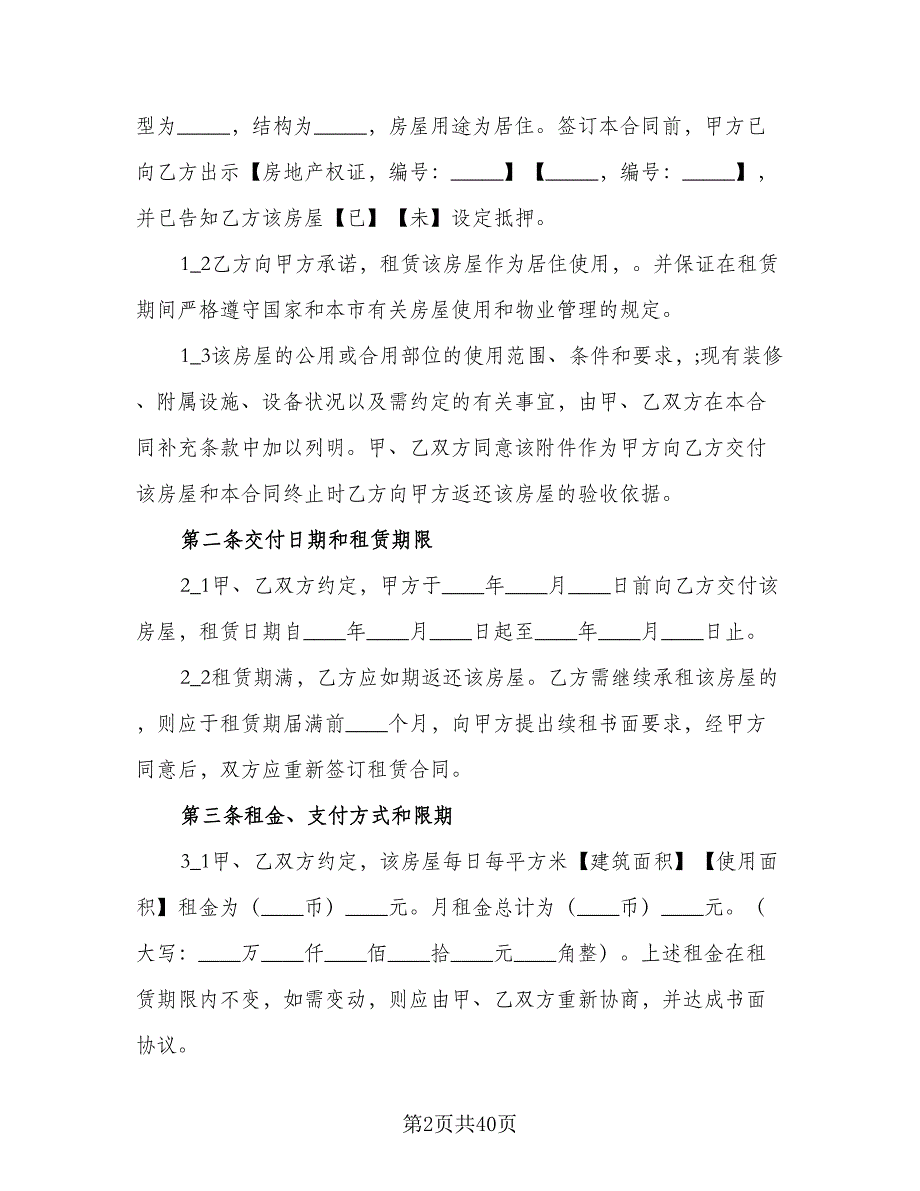 型为_____，结构为_____，房屋用途为居住。签订本合同前，甲方已
向乙方出示【房地产权证，编号：_____】【_____，编号：_____】，
并已告知乙方该房屋【已】【未】设定抵押。
1_2乙方向甲方承诺，租赁该房屋作为居住使用，。并保证在租赁
期间严格遵守国家和本市有关房屋使用和物业管理的规定。
1_3该房屋的公用或合用部位的使用范围、条件和要求，;现有装修
、附属设施、设备状况以及需约定的有关事宜，由甲、乙双方在本合
同补充条款中加以列明。甲、乙双方同意该附件作为甲方向乙方交付
该房屋和本合同终止时乙方向甲方返还该房屋的验收依据。
第二条交付日期和租赁期限
2_1甲、乙双方约定，甲方于____年____月____日前向乙方交付该
房屋，租赁日期自____年____月____日起至____年____月____日止。
2_2租赁期满，乙方应如期返还该房屋。乙方需继续承租该房屋的
，则应于租赁期届满前____个月，向甲方提出续租书面要求，经甲方
同意后，双方应重新签订租赁合同。
第三条租金、支付方式和限期
3_1甲、乙双方约定，该房屋每日每平方米【建筑面积】【使用面
积】租金为（____币）____元。月租金总计为（____币）____元。（
大写：____万____仟____佰____拾____元____角整）。上述租金在租
赁期限内不变，如需变动，则应由甲、乙双方重新协商，并达成书面
协议。
第2页共40页